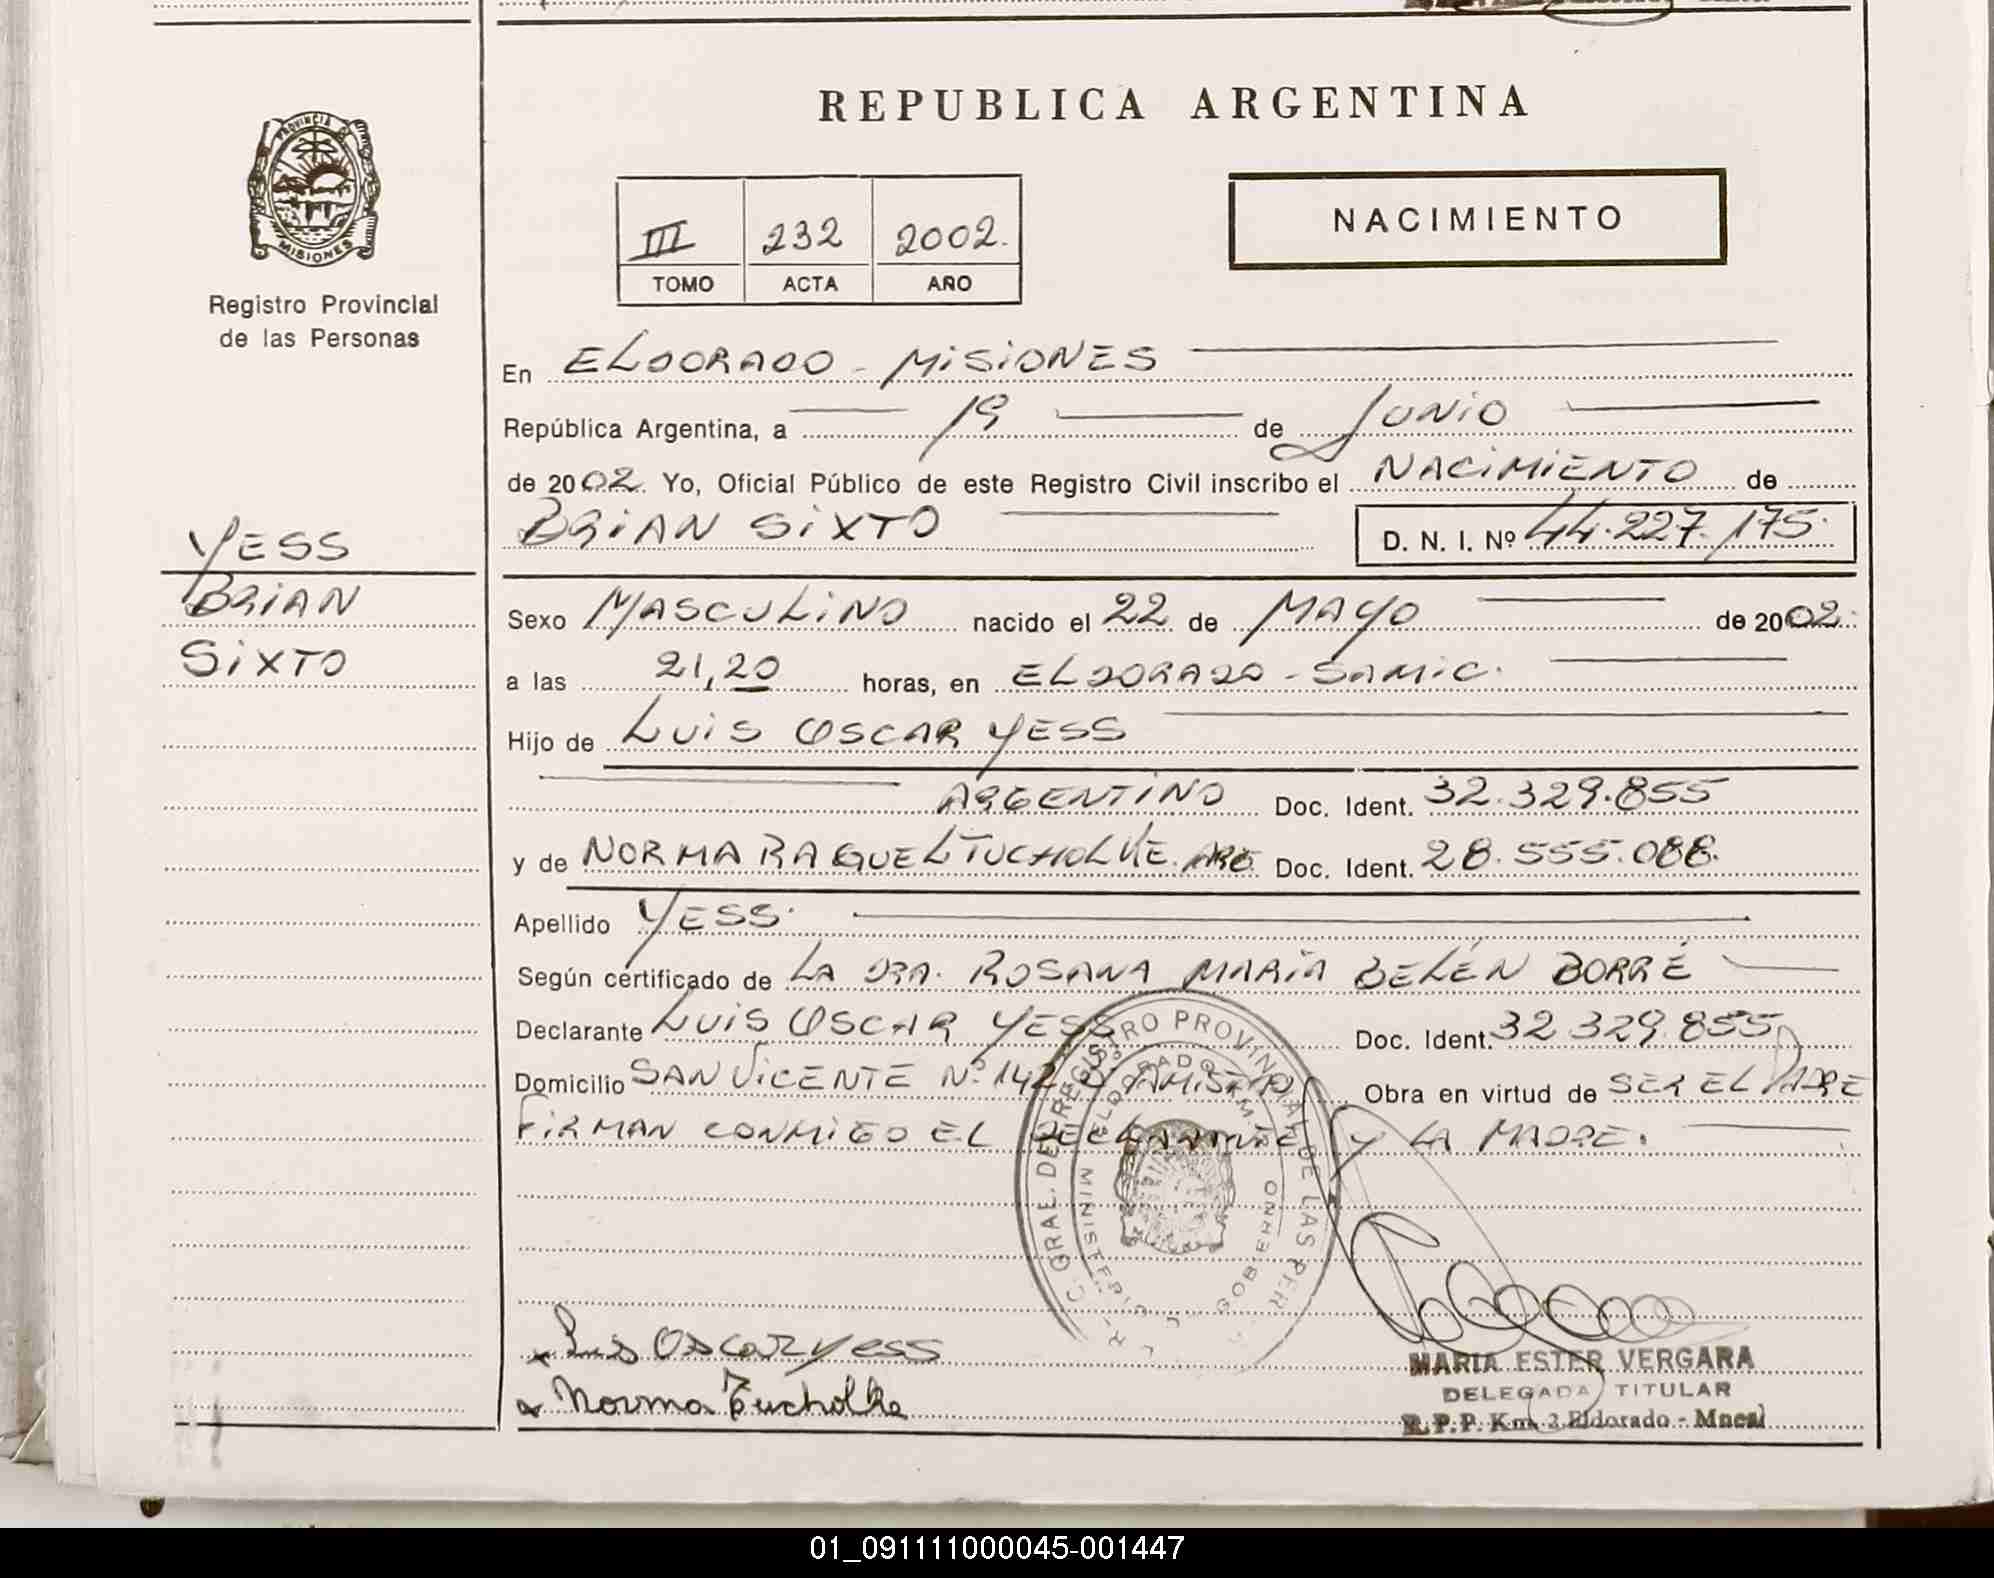 REPUBLICA ARGENTINA
PROVINCIA DE
MISIONES
Registro Provincial
de las Personas
III 232 2002.
TOMO ACTA AÑO
NACIMIENTO
En ELDORADO - MISIONES
República Argentina, a 19 de JUNIO
de 2002. Yo, Oficial Público de este Registro Civil inscribo el NACIMIENTO de
BRIAN SIXTO D. N. I. Nº 44.227.175.
YESS
BRIAN
SIXTO
Sexo MASCULINO nacido el 22 de MAYO de 2002.
a las 21,20 horas, en ELDORADO - SAMIC.
Hijo de LUIS OSCAR YESS
ARGENTINO Doc. Ident. 32.329.855
y de NORMA RAQUEL TUCHOLKE. ARG. Doc. Ident. 28.555.088.
Apellido YESS.
Según certificado de LA DRA. ROSANA MARÍA BELÉN BORRÉ
Declarante LUIS OSCAR YESS Doc. Ident. 32 329.855
Domicilio SAN VICENTE Nº 142 Obra en virtud de SER EL PADRE
FIRMAN CONMIGO EL DECLARANTE Y LA MADRE.
GRAL. DEL REGISTRO PROVINCIAL DE LAS PER
ELDORADO
MINISTERIO GOBIERNO
x Luis Oscar yess
x Norma Tucholke
MARIA ESTER VERGARA
DELEGADA TITULAR
R.P.P. Km. 2 Eldorado - Mnes
01_091111000045-001447